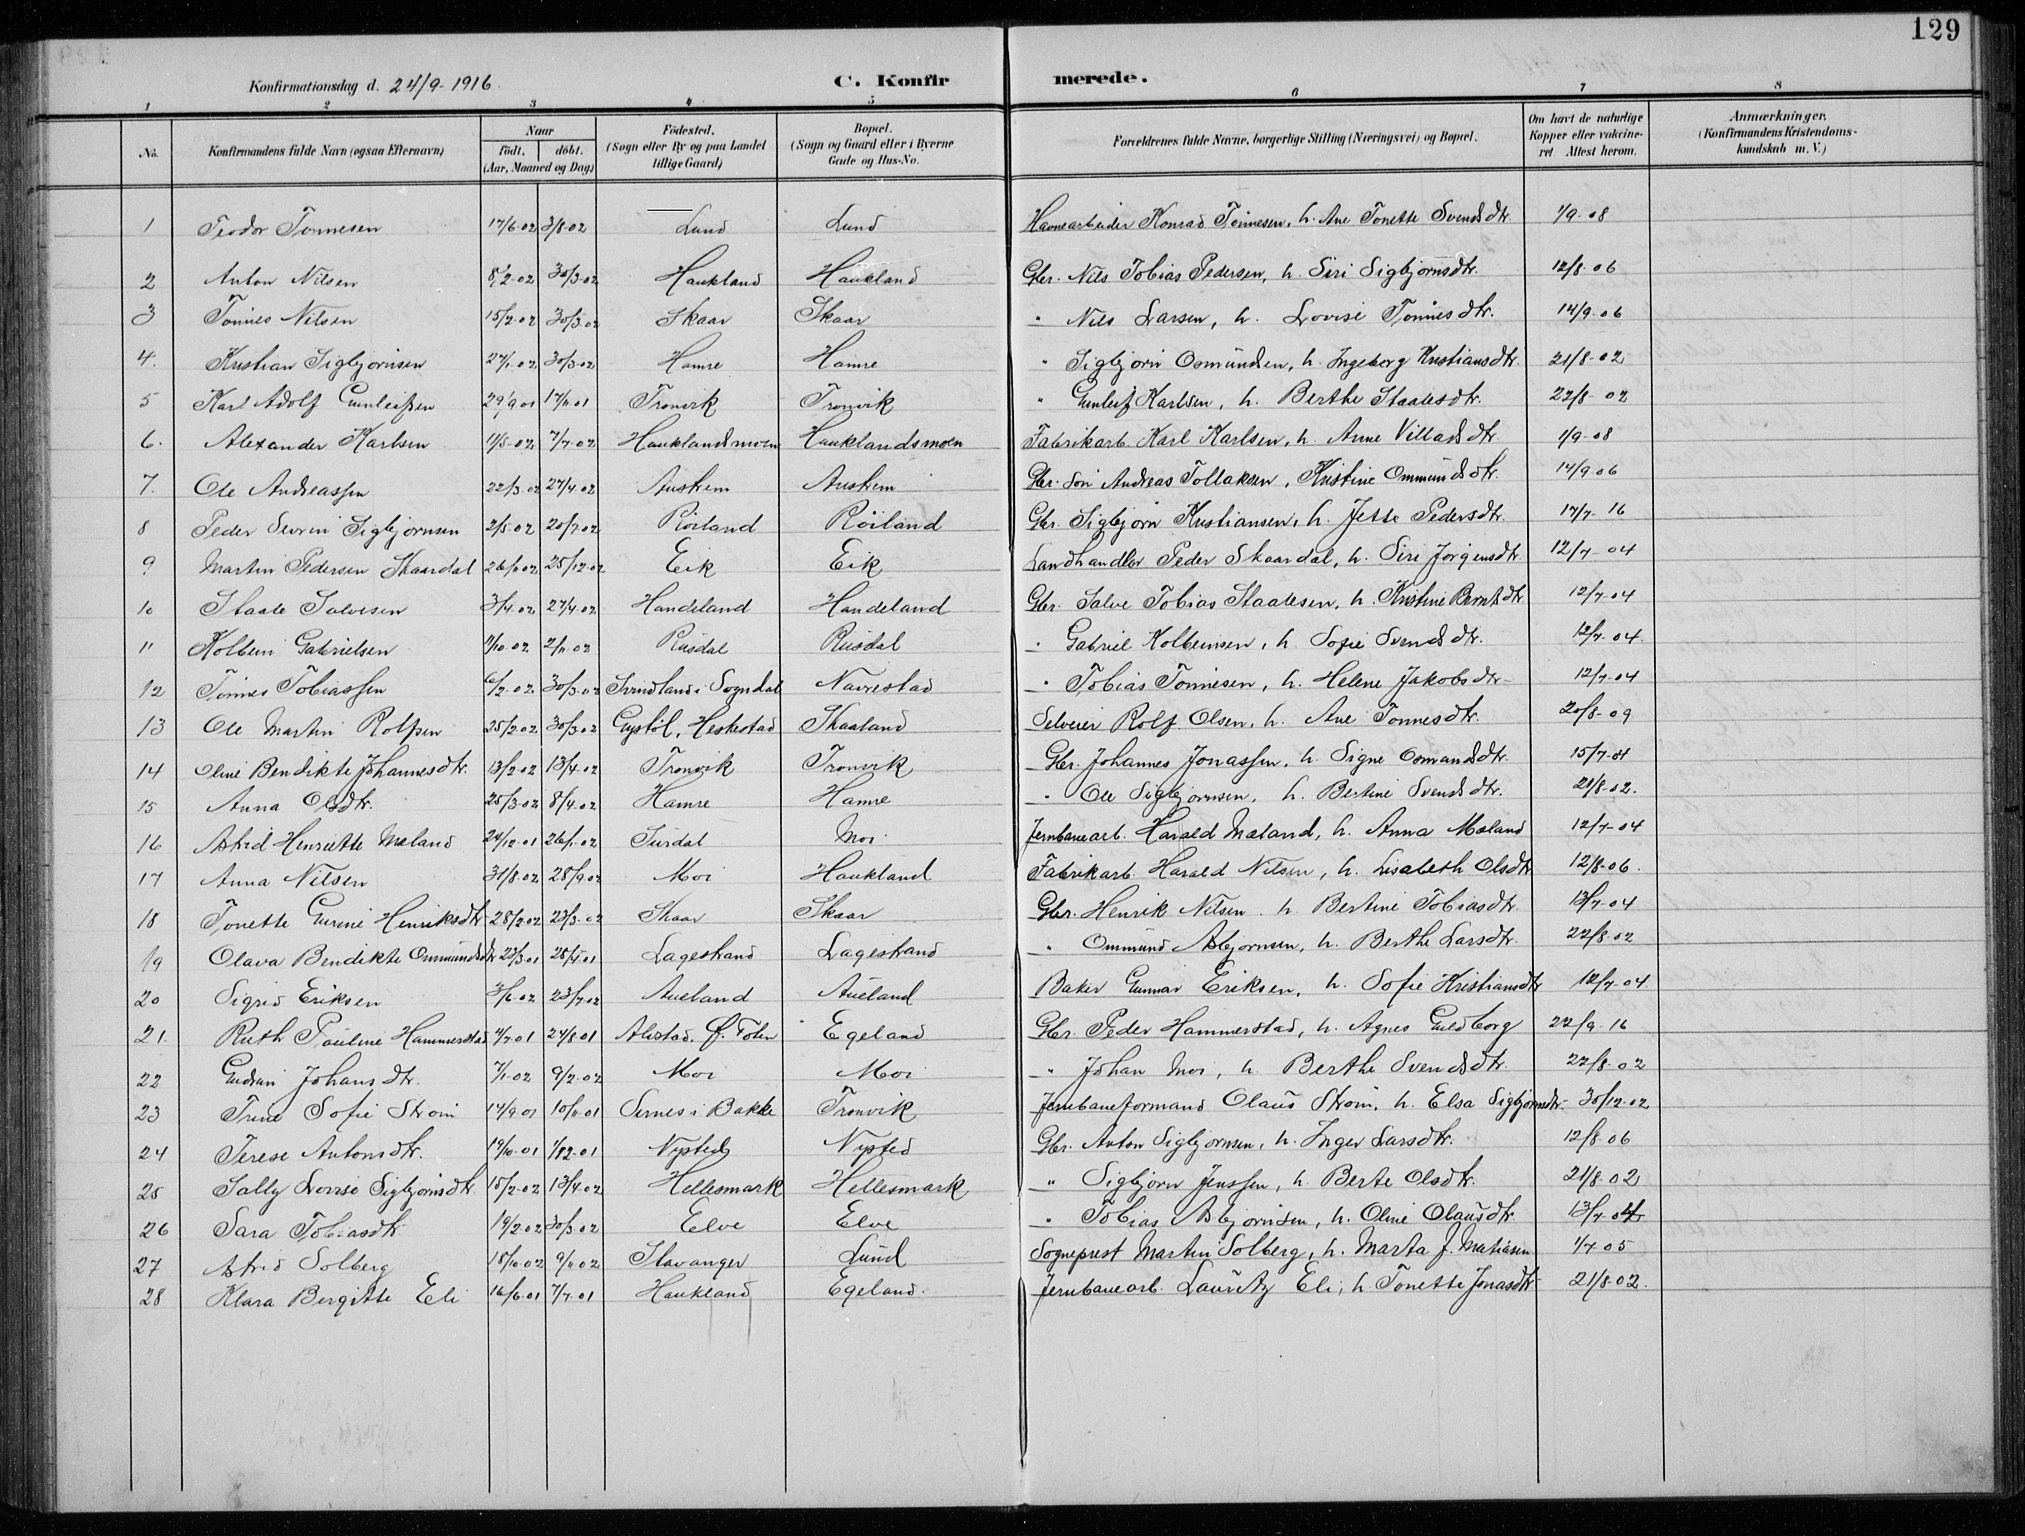 129
Konfirmationsdag d. 24/9-1916.
C. Konfirmerede.
1 2 3 4 5 6 7 8
No. Konfirmandens fulde Navn (ogsaa Efternavn) Naar födt. döbt. (Aar, Maaned og Dag) Födested. (Sogn eller By og paa Landet tillige Gaard) Bopæl. (Sogn og Gaard eller i Byerne Gade og Hus-No. Forældrenes fulde Navne, borgerlige Stilling (Næringsvei) og Bopæl. Om havt de naturlige Kopper eller vakcineret. Attest herom. Anmærkninger. (Konfirmandens Kristendomskundskab m. V.)
1 Teodor Tönnesen 17/6-02 3/8-02 Lund Lund Havnearbeider Konrad Tönnesen, h. Ane Tonette Svendsdtr. 1/9-08
2 Anton Nilsen 8/2-02 30/3-02 Haukland Haukland Gbr. Nils Tobias Pedersen, h. Siri Sigbjörnsdtr. 12/8-06
3 Tönnes Nilsen 15/2-02 30/3-02 Skaar Skaar " Nils Larsen, h. Lovise Tönnesdtr. 14/9-06
4. Kristian Sigbjörnsen 27/1-02 30/3-02 Hamre Hamre " Sigbjörn Osmundsen, h. Ingeborg Kristiansdtr. 21/8-02
5 Karl Adolf Gunleifsen 29/9 01 17/11 01 Tronvik Tronvik " Gunleif Karlsen, h. Berthe Staalesdtr. 22/8-02
6. Alexander Karlsen 11/5-02 7/7-02 Hauklandsmoen Hauklandsmoen Fabrikarb. Karl Karlsen, h. Anne Villadsdtr. 1/9-08
7. Ole Andreassen 22/3-02 27/4-02 Austrem Austrem Gbr. Sön Andreas Tollaksen, Kristine Ommundsdtr. 14/9 06
8 Peder Severin Sigbjörnsen 2/5-02 20/7-02 Röiland Röiland Gbr. Sigbjörn Kristiansen, h. Jette Pedersdtr. 17/7-16
9 Martin Pedersen Skaardal 26/11 02 25/12-02 Eik Eik Landhandler Peder Skaardal, h. Siri Jörgensdtr. 12/7-04
10 Staale Salvesen 3/4-02 27/4-02 Handeland Handeland Gbr. Salve Tobias Staalesen, h. Kristine Berntsdtr. 12/7-04
11 Kolbein Gabrielsen 11/10-02 2/11-02 Rusdal Rusdal " Gabriel Kolbeinsen, h. Sofie Svendsdtr. 12/7-04.
12 Tönnes Tobiassen 6/2-02 30/3-02 Svindland i Sogndal Navrestad " Tobias Tönnesen, h. Helene Jakobsdtr. 12/7-04
13 Ole Martin Rolfsen 25/2-02 30/3-02 Gystöl, Heskestad Skaaland Selveier Rolf Olsen, h. Ane Tönnesdtr. 20/8-09
14 Oline Bendikte Johannesdtr. 13/2-02 13/4-02 Tronvik Tronvik Gbr. Johannes Jonassen, h. Signe Osmundsdtr. 15/7-04
15 Anna Olsdtr. 25/3-02 8/4-02 Hamre Hamre " Ole Sigbjörnsen, h. Bertine Svendsdtr. 21/8-02.
16 Astrid Henriette Meland 24/12-01 26/1-02 Sirdal Moi. Jernbanearb. Harald Meland, h. Anna Meland 12/7-04
17 Anna Nilsen 31/8-02 28/9 02 Moi Haukland Fabrikarb. Harald Nilsen, h. Lisabeth Olsdtr. 12/8-06.
18 Tonette Gurine Henriksdtr. 28/2-02 23/3-02 Skaar Skaar Gbr. Henrik Nilsen, h. Bertine Tobiasdtr. 13/7-04
19 Olava Bendikte Ommundsdtr. 23/3-01 28/4-01 Lagestrand Lagestrand " Ommund Asbjörnsen, h. Berthe Larsdtr. 22/8-02
20 Sigrid Eriksen 3/6-02 23/7-02 Aueland Aueland Baker Gunnar Eriksen, h. Sofie Kristiansdtr. 12/7-04
21. Ruth Pauline Hammerstad 4/7-01 24/8 01 Alstad, Ö. Toten Egeland Gbr. Peder Hammerstad, h. Agnes Guldborg 22/9-16
22 Gudrun Johansdtr. 7/1-02 9/2-02 Moi Moi " Johan Moi, h. Berthe Svendsdtr. 22/8-02
23 Trine Sofie Ström 14/9 01 10/11-01 Sirnes i Bakke Tronvik Jernbaneformand Olaus Ström, h. Elsa Sigbjörnsdtr. 30/12-02
24 Terese Antonsdtr. 19/10-01 1/12-01 Nysted Nysted Gbr. Anton Sigbjörnsen, h. Inger Larsdtr. 12/8-06
25 Sally Lovise Sigbjörnsdtr. 15/2-02 13/4-02 Hellesmark Hellesmark " Sigbjörn Jenssen, h. Berte Olsdtr. 21/8-02
26 Sara Tobiasdtr. 19/2-02 30/3-02 Elve Elve " Tobias Asbjörnsen, h. Oline Olausdtr. 13/7-04
27 Astrid Solberg 18/10 02 9/11-02 Stavanger Lund Sogneprest Martin Solberg, h. Marta f. Matiasen 1/7 05
28 Klara Bergitte Eli 16/6-01 7/7-01 Haukland Egeland. Jernbanearb. Lauritz Eli, h. Tonette Jonasdtr. 21/8 02.